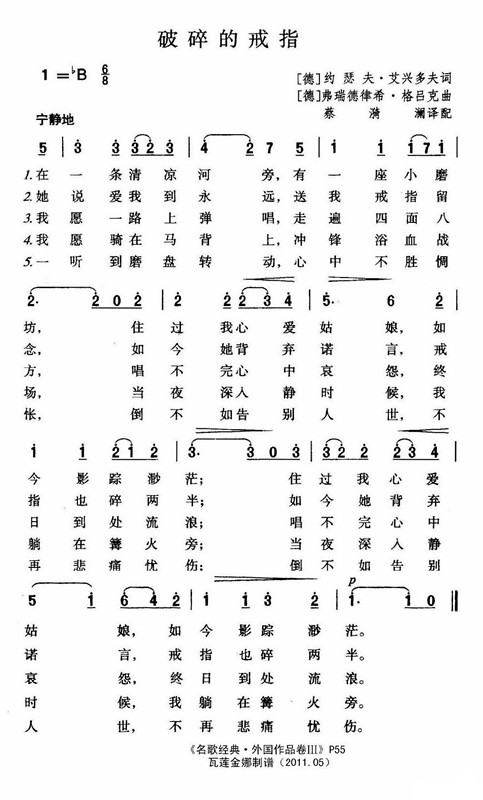 破碎的戒指
1=♭B 6/8
[德]约瑟夫·艾兴多夫词
[德]弗瑞德律希·格吕克曲
蔡漪澜译配
宁静地
5 | 3 3 3 2 3 | 2 7 5 | 1 1 1 7 1 |
1.在一条清凉河旁,有一座小磨
2.她说爱我到永远,送我戒指留
3.我愿一路上弹唱,走遍四面八
4.我愿骑在马背上,冲锋浴血战
5.一听到磨盘转动,心中不胜惆
2· 2 0 2 | 2 2 2 3 4 | 5· 6 2 |
坊,住过我心爱姑娘,如
念,如今她背弃诺言,戒
方,唱不完心中哀怨,终
场,当夜深入静时候,我
怅,倒不如告别人世,不
1 1 2 1 2 | 3· 3 0 3 | 3 2 2 2 3 4 |
今影踪渺茫;住过我心爱
指也碎两半;如今她背弃
日到处流浪;唱不完心中
躺在篝火旁;当夜深入静
再悲痛忧伤;倒不如告别
p
5 1 6 4 2 | 1 1 3 2 | 1· 1 0 ‖
姑娘,如今影踪渺茫。
诺言,戒指也碎两半。
哀怨,终日到处流浪。
时候,我躺在篝火旁。
人世,不再悲痛忧伤。
《名歌经典·外国作品卷III》P55
瓦莲金娜制谱(2011.05)